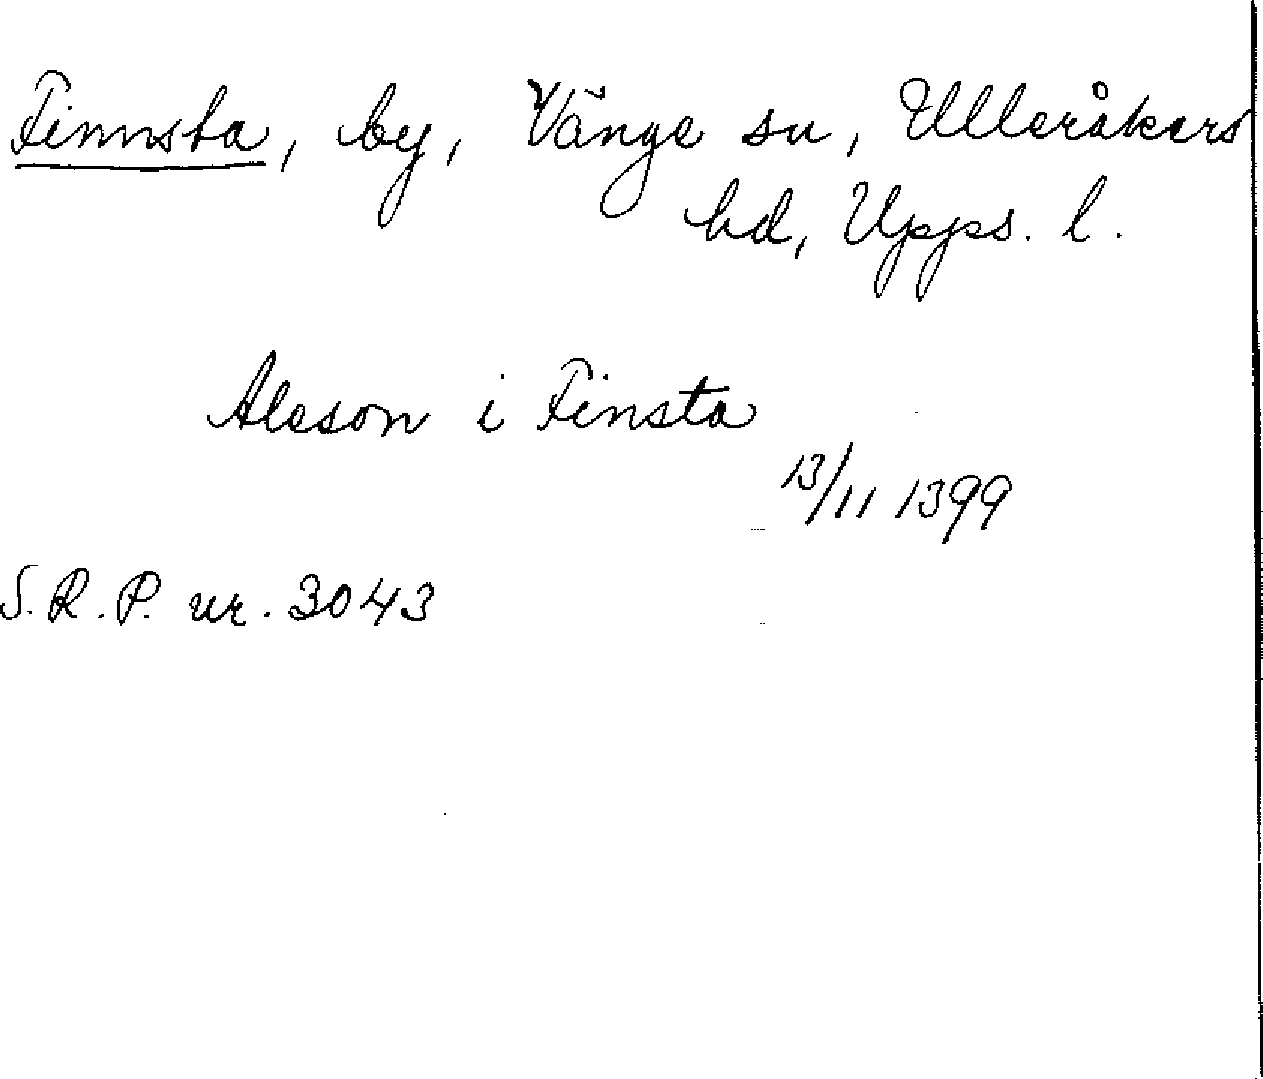 Finnsta, by, Vänge sn, Ulleråkers
hd, Upps. l.
Aleson i Finsta
13/11 1399
S.R.P. nr. 3043